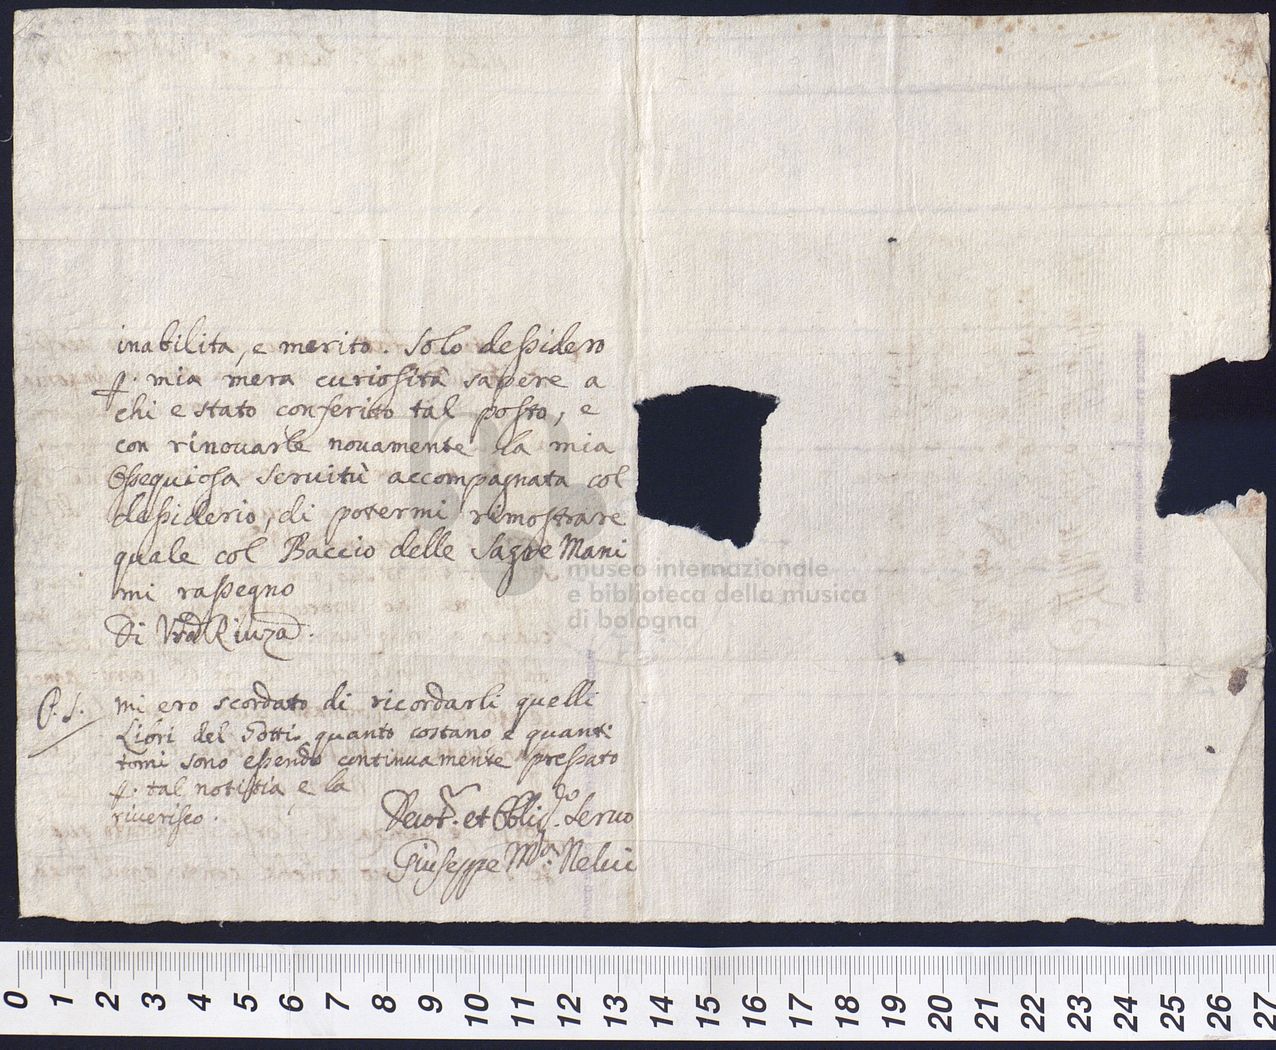 inabilita, e merito. Solo dessidero
p. mia mera curiosità sapere a
chi e stato conferitto tal posto, e
con rinouarle nouamente la mia
Ossequiosa seruitù accompagnata col
dessiderio, di potermi rimostrare
quale col Baccio delle Sagre Mani
mi rassegno
Di Vrã Riuzã.
P.S. mi ero scordato di ricordarli quelli
Libri del Sotti quanto costano e quanti
tomi sono essendo continuamente pressato
p. tal notistia e la
riuerisco.
Deuot. et Obblig.do Seruo
Giuseppe M.a Nelui
museo internazionale
e biblioteca della musica
di bologna
0 1 2 3 4 5 6 7 8 9 10 11 12 13 14 15 16 17 18 19 20 21 22 23 24 25 26 27